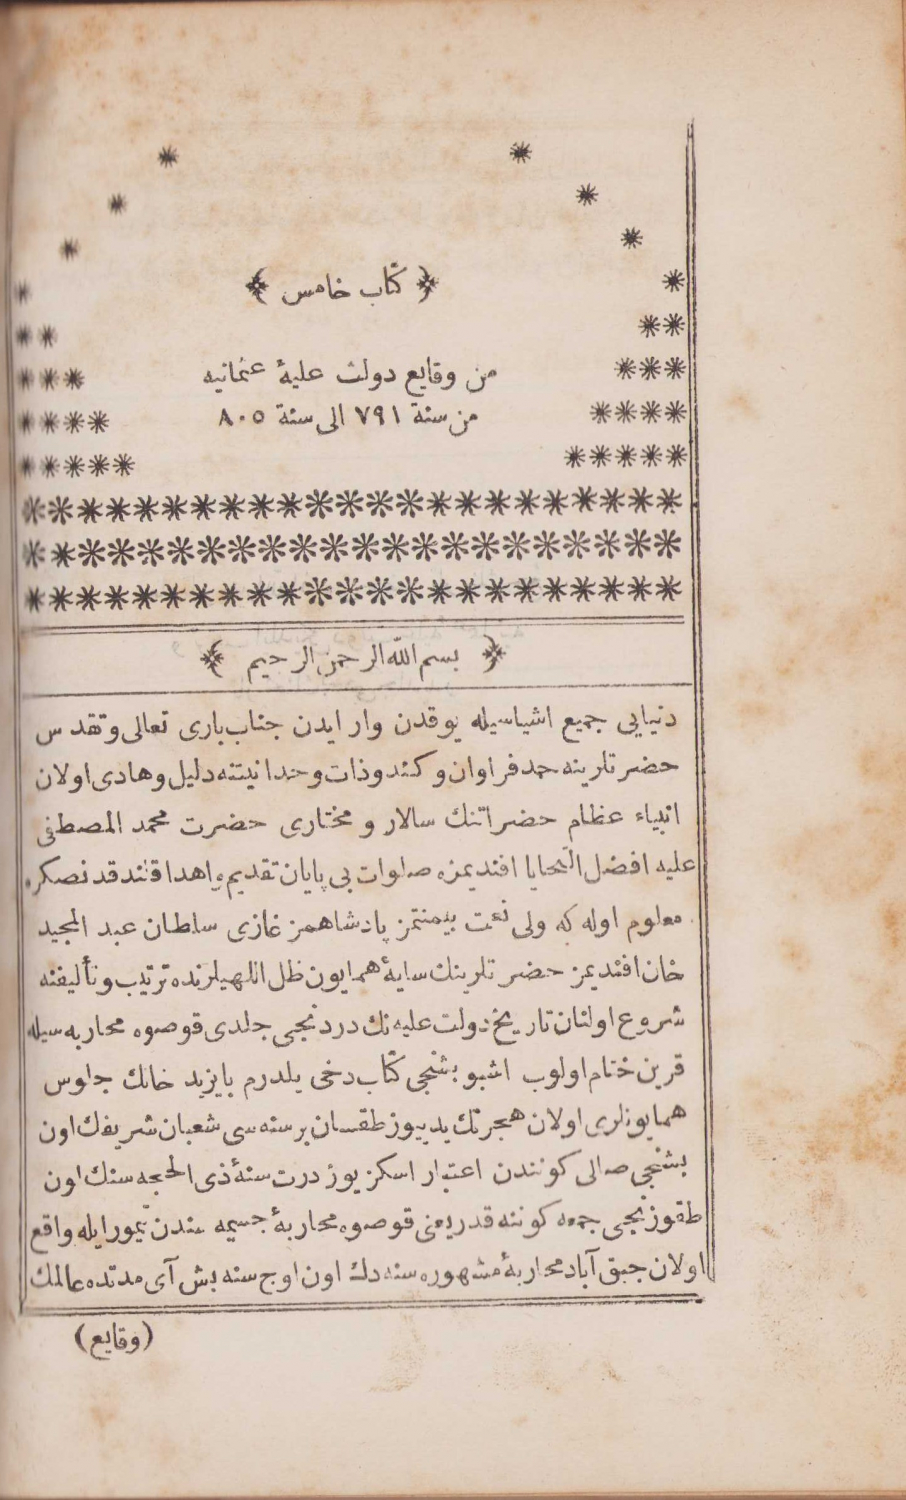 ﴿ كتاب خامس ﴾
من وقايع دولت عليهٔ عثمانيه
من سنة ٧٩١ الى سنة ٨٠٥
﴿ بسم الله الرحمن الرحيم ﴾
دنيايى جميع اشياسيله يوقدن وار ايدن جناب بارى تعالى وتقدس
حضرتلرينه حمد فراوان و كندو ذات وحدانيتنه دليل وهادى اولان
انبياء عظام حضراتنك سالار و مختارى حضرت محمد المصطفى
عليه افضل التحايا افنديمزه صلوات بى پايان تقديم و اهدا قلندقدنصكره
معلوم اوله كه ولى نعمت بيمنتمز پادشاهمز غازى سلطان عبد المجيد
خان افنديمز حضرتلرينك سايهٔ همايون ظل اللهيلرنده ترتيب وتأليفنه
شروع اولنان تاريخ دولت عليه نك دردنجى جلدى قوصوه محاربه سيله
قرين ختام اولوب اشبو بشنجى كتاب دخى يلدرم بايزيد خانك جلوس
همايونلرى اولان هجرتك يديوز طقسان بر سنه سى شعبان شريفك اون
بشنجى صالى كونندن اعتبار اسكز يوز درت سنهٔ ذى الحجه سنك اون
طقوزنجى جمعه كوننه قدر يعنى قوصوه محاربهٔ جسيمه سندن تيمور ايله واقع
اولان جبق آباد محاربهٔ مشهوره سنه دك اون اوج سنه بش آى مدتده عالمك
(وقايع)